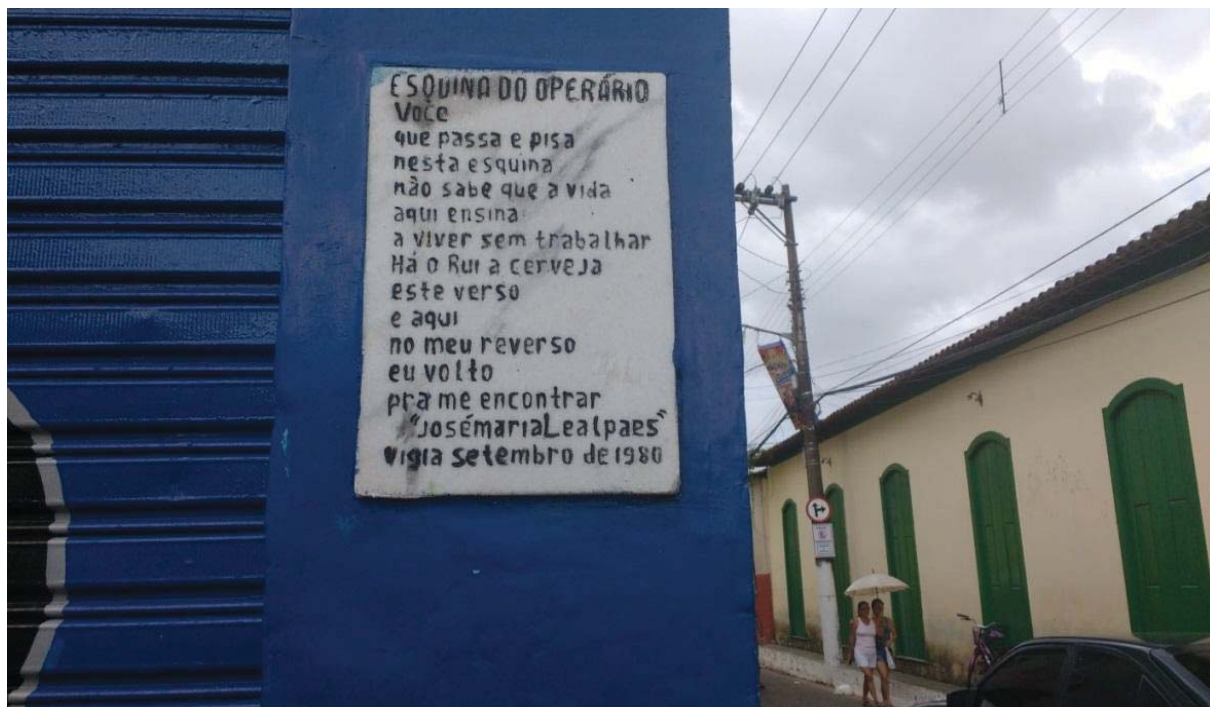 ESQUINA DO OPERÁRIO
Você
que passa e pisa
nesta esquina
não sabe que a vida
aqui ensina
a viver sem trabalhar
Há o Rui a cerveja
este verso
e aqui
no meu reverso
eu volto
pra me encontrar
"JosémariaLealpaes"
vigia setembro de 1980